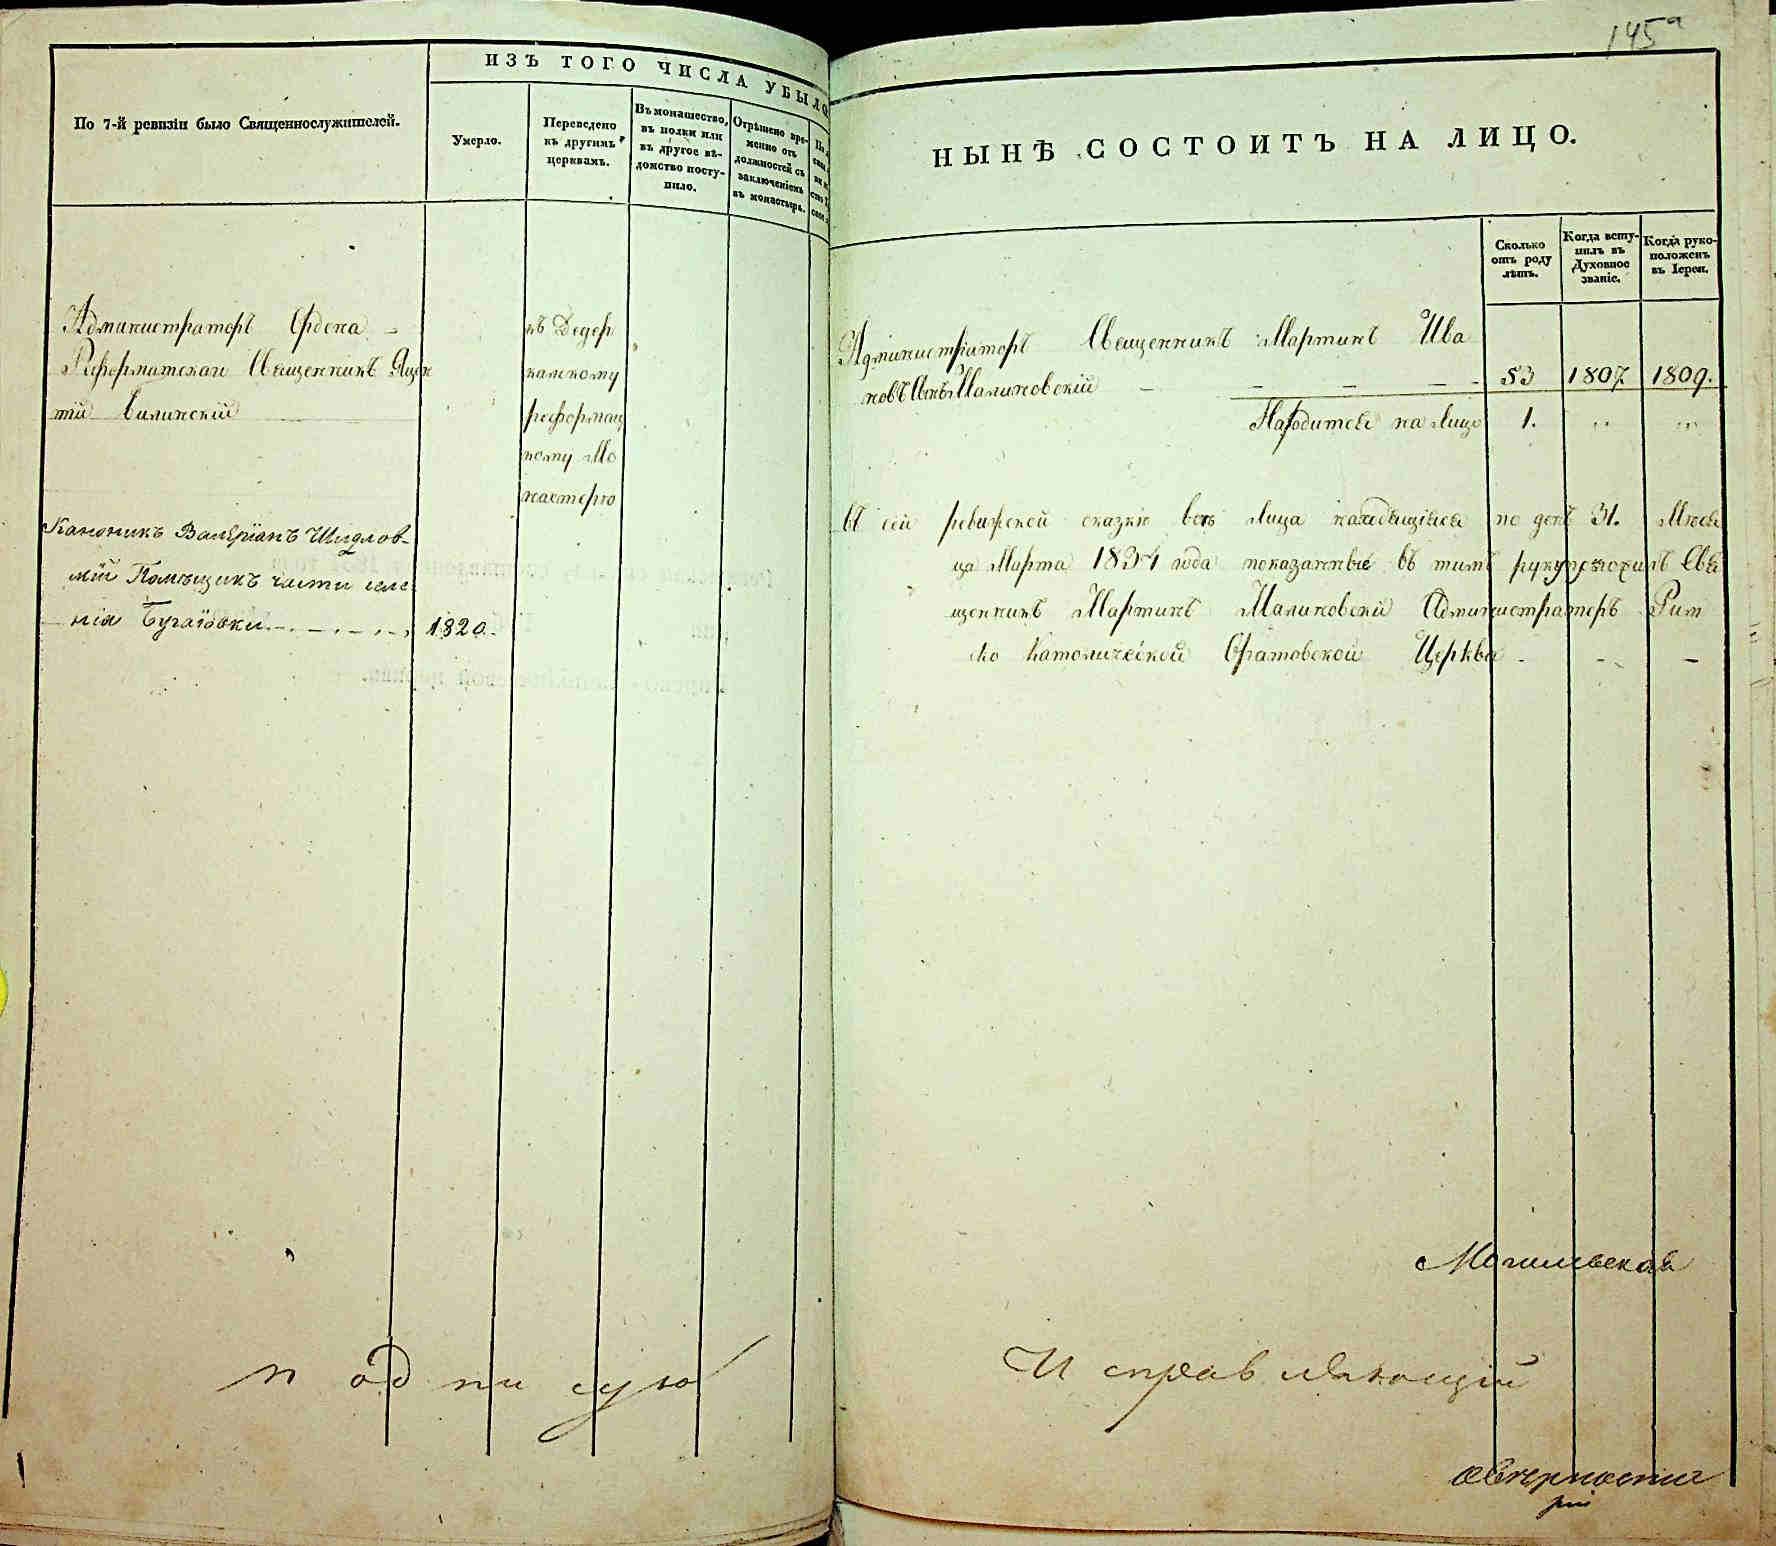 145а
По 7-й ревизіи было Священнослужителей.
ИЗЪ ТОГО ЧИСЛА УБЫЛО
Умерло.
Переведено
къ другимъ
церквамъ.
Въ монашество,
въ полки или
въ другое вѣ-
домство посту-
пило.
Отрѣшено вре-
менно отъ
должностей съ
заключеніемъ
въ монастырь.
Администраторъ Ордена -
Реформатскаго Священникъ Яцен
тій Билинскій
къ Дедер
калскому
реформат
скому Мо
настерю
Каноникъ Валеріанъ Шидлов-
скій Помѣщикъ части селе
нія Бугаіовки 1820.
подписую
НЫНѢ СОСТОИТЪ НА ЛИЦО.
Сколько
отъ роду
лѣтъ.
Когда всту-
пилъ въ
Духовное
званіе.
Когда руко-
положенъ
въ Іереи.
Администраторъ Священникъ Мартинъ Ива
новъ Сынъ Малиновскій - - - - 53 1807 1809.
Находится на лицо 1. " "
Въ сей ревизской сказкѣ всѣ лица находящіеся по день 31. Мѣся
ца Марта 1834 года показанные въ томъ Свя
щенникъ Мартинъ Малиновскій Администраторъ Рим
ско Католической Оратовской Церкви - - -
Исправляющій